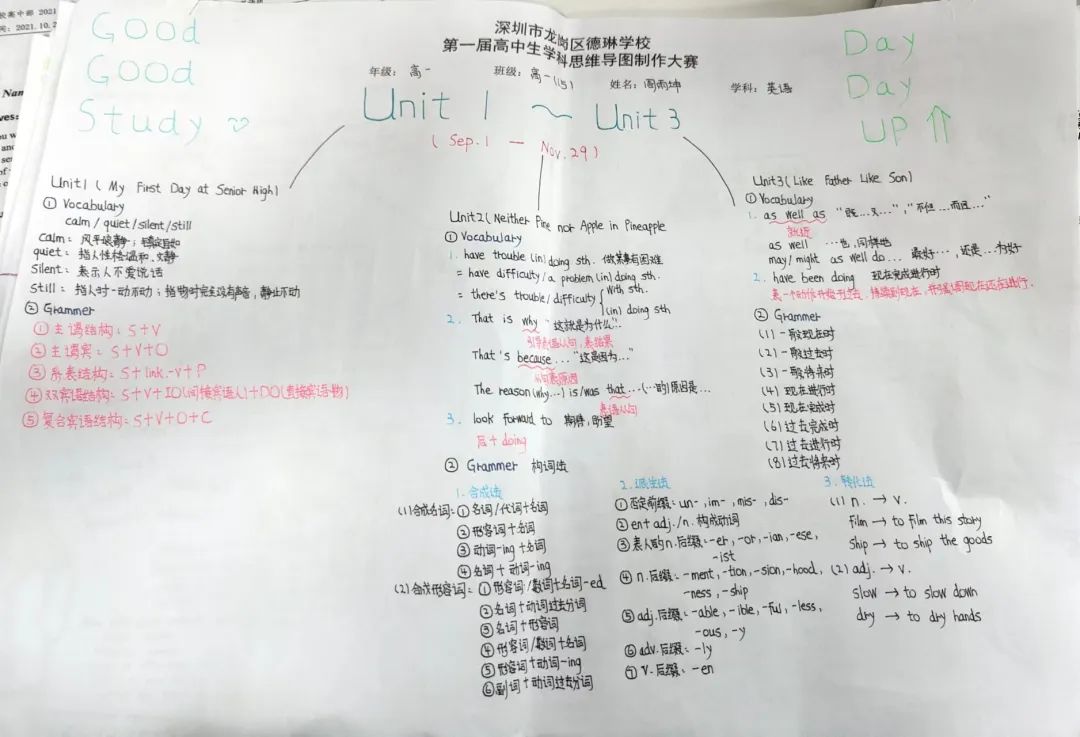 校高中部 2021
间：2021.10.2
Nam
ves:
ou w
and
ser
of
Good
Good
Study
深圳市龙岗区德琳学校
第一届高中生学科思维导图制作大赛
年级：高一 班级：高一(15) 姓名：周雨坤 学科：英语
Day
Day
UP ⇑
Unit 1 ~ Unit 3
( Sep. 1 — Nov. 29 )
Unit1 ( My First Day at Senior High)
① Vocabulary
calm / quiet/silent/still
calm：风平浪静；镇定自如
quiet：指人性格温和、文静
Silent：表示人不爱说话
Still：指人时一动不动；指物时完全没有声音，静止不动
② Grammer
①主谓结构：S+V
②主谓宾：S+V+O
③系表结构：S+link.-v+P
④双宾语结构：S+V+IO(间接宾语人)+DO(直接宾语物)
⑤复合宾语结构：S+V+O+C
Unit2 ( Neither Pine nor Apple in Pineapple
① Vocabulary
1. have trouble (in) doing sth. 做某事有困难
= have difficulty/a problem (in) doing sth.
= there's trouble/difficulty { with sth.
(in) doing sth
2. That is why "这就是为什么".
引导表语从句，表结果
That's because... "这是因为..."
从句表原因
The reason (why...) is/was that ...(...的)原因是...
表语从句
3. look forward to 期待，盼望
后+doing
② Grammer 构词法
1. 合成法
(1)合成名词：①名词/代词+名词
②形容词+名词
③动词-ing+名词
④名词+动词-ing
(2)合成形容词：①形容词/数词+名词-ed
②名词+动词过去分词
③名词+形容词
④形容词/数词+名词
⑤形容词+动词-ing
⑥副词+动词过去分词
2. 派生法
①否定前缀：un-, im-, mis-, dis-
②en+adj./n. 构成动词
③表人的n.后缀：-er, -or, -ian, -ese,
-ist
④n.后缀：-ment, -tion, -sion, -hood,
-ness, -ship
⑤adj.后缀：-able, -ible, -ful, -less,
-ous, -y
⑥adv.后缀：-ly
⑦v.后缀：-en
3. 转化法
(1) n. → v.
film → to film this story
ship → to ship the goods
(2) adj. → v.
slow → to slow down
dry → to dry hands
Unit3 ( Like Father Like Son)
① Vocabulary
1. as well as "既...又...", "不但...而且..."
就近
as well ...也，同样地
may/might as well do... 最好...，还是...为好
2. have been doing 现在完成进行时
表一个动作开始于过去，持续到现在，并强调现在还在进行.
② Grammer
(1) 一般现在时
(2) 一般过去时
(3) 一般将来时
(4) 现在进行时
(5) 现在完成时
(6) 过去完成时
(7) 过去进行时
(8) 过去将来时